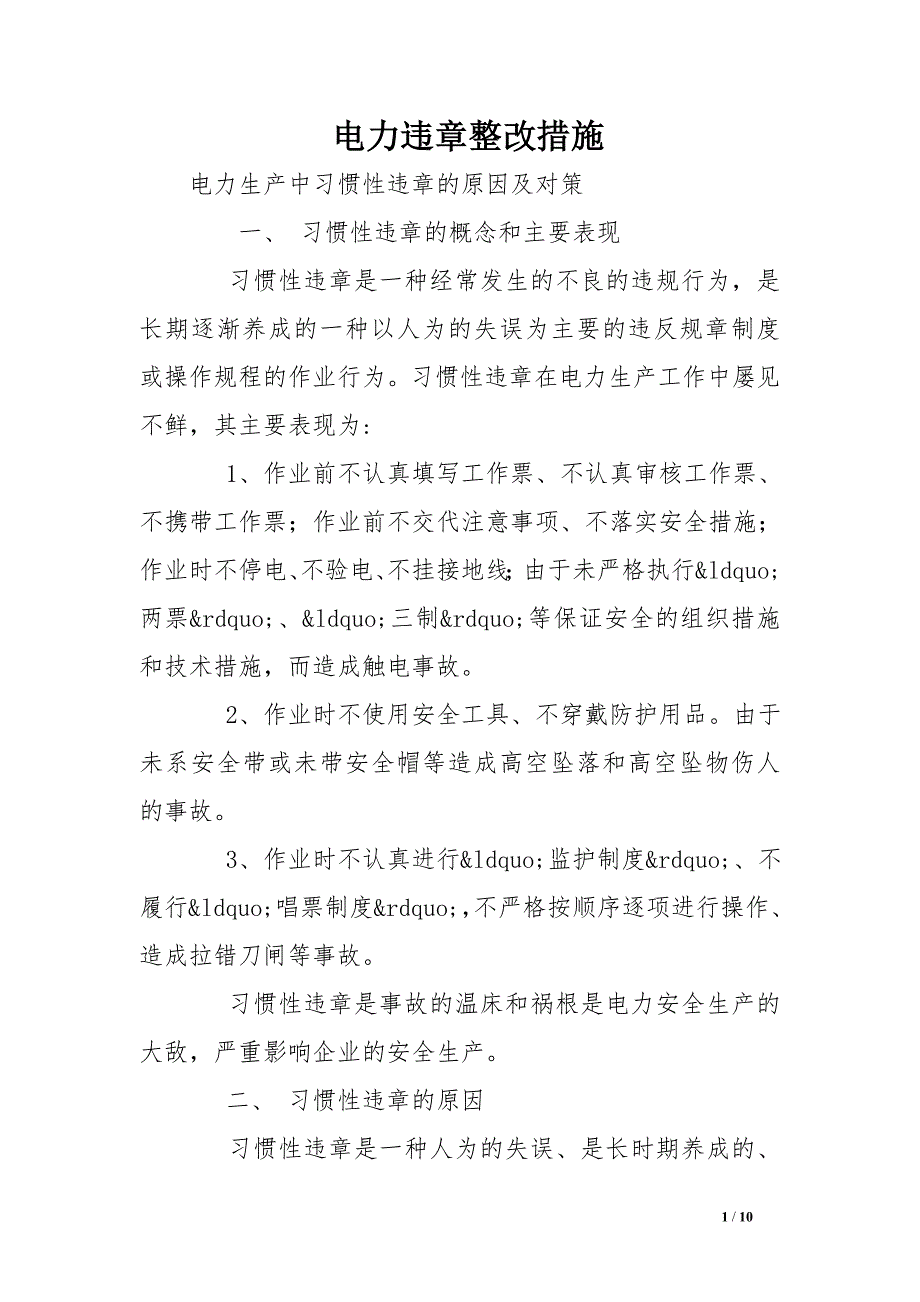 电力违章整改措施
电力生产中习惯性违章的原因及对策
一、 习惯性违章的概念和主要表现
习惯性违章是一种经常发生的不良的违规行为，是
长期逐渐养成的一种以人为的失误为主要的违反规章制度
或操作规程的作业行为。习惯性违章在电力生产工作中屡见
不鲜，其主要表现为:
1、作业前不认真填写工作票、不认真审核工作票、
不携带工作票；作业前不交代注意事项、不落实安全措施；
作业时不停电、不验电、不挂接地线；由于未严格执行&ldquo;
两票&rdquo;、&ldquo;三制&rdquo;等保证安全的组织措施
和技术措施，而造成触电事故。
2、作业时不使用安全工具、不穿戴防护用品。由于
未系安全带或未带安全帽等造成高空坠落和高空坠物伤人
的事故。
3、作业时不认真进行&ldquo;监护制度&rdquo;、不
履行&ldquo;唱票制度&rdquo;，不严格按顺序逐项进行操作、
造成拉错刀闸等事故。
习惯性违章是事故的温床和祸根是电力安全生产的
大敌，严重影响企业的安全生产。
二、 习惯性违章的原因
习惯性违章是一种人为的失误、是长时期养成的、
1 / 10